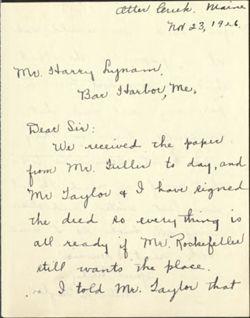 Otter Creek. Maine
Nov 23, 1926.
Mr. Harry Lynam.
Bar Harbor, Me,
Dear Sir:
We received the paper
from Mr. Fuller to day, and
Mr Taylor & I have signed
the deed so everything is
all ready if Mr. Rockefeller
still wants the place.
I told Mr. Taylor that